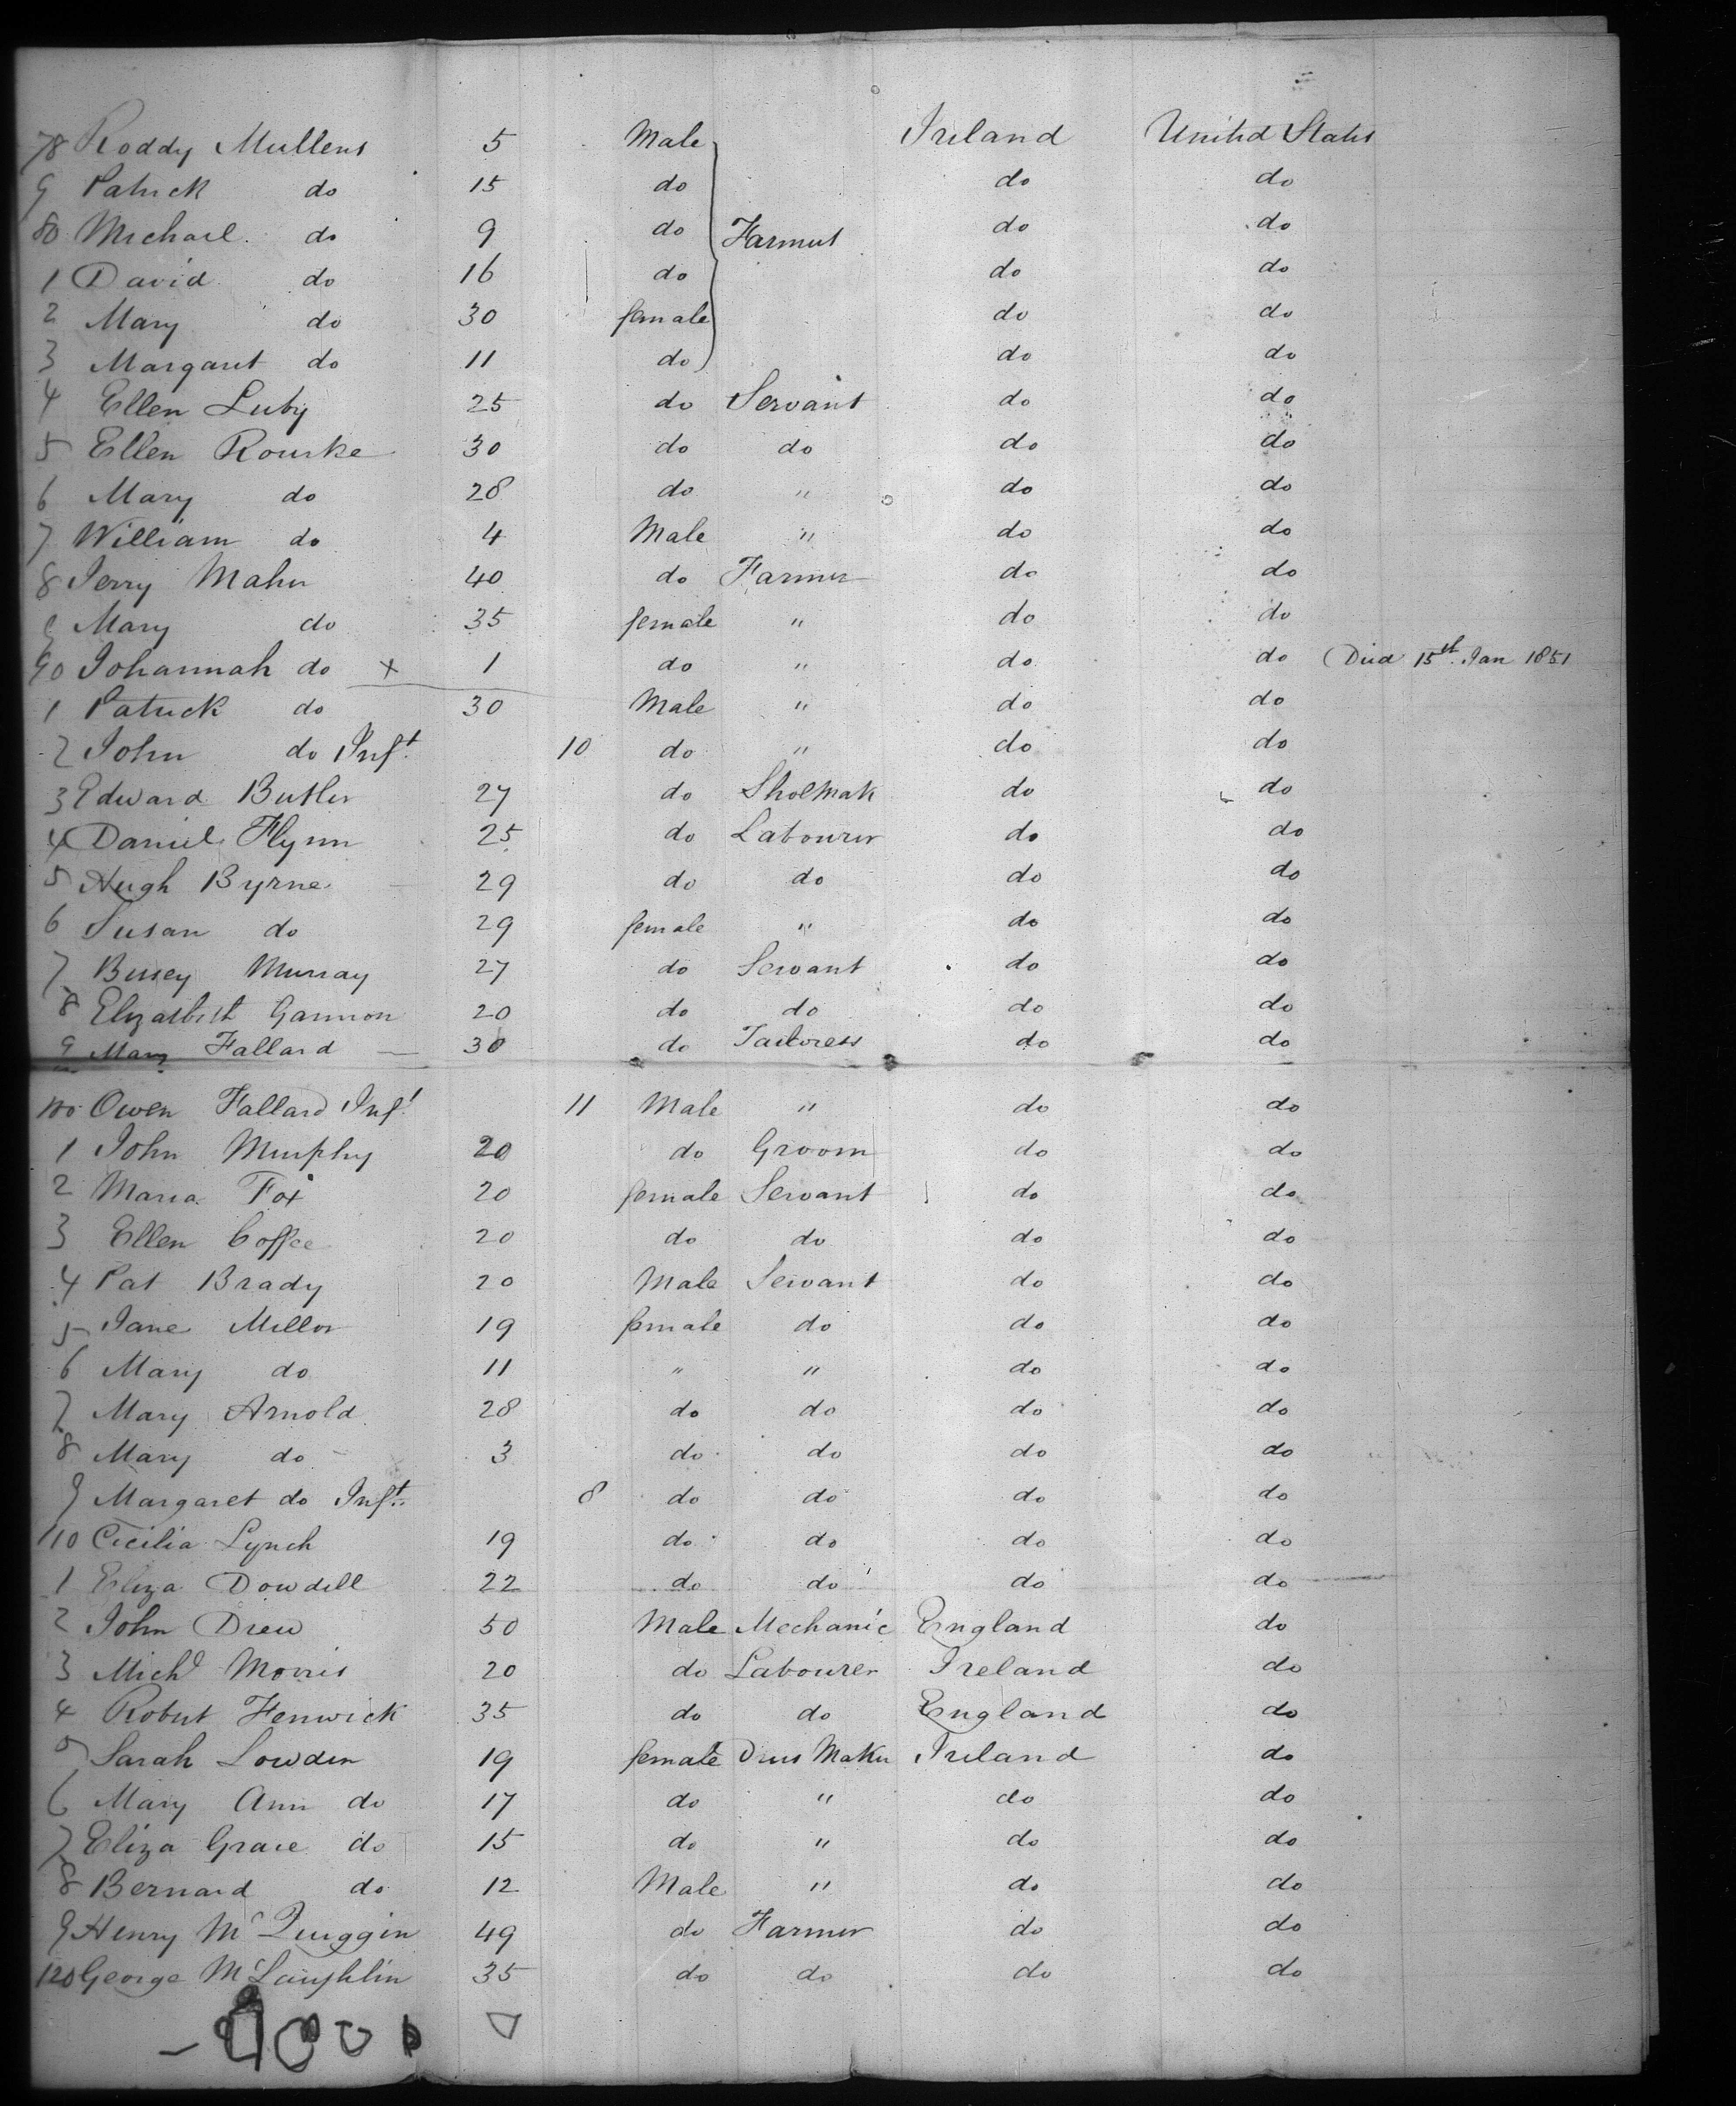 78 Roddy Mullens 5 Male Ireland United States
9 Patrick do 15 do do do
80 Michael do 9 do Farmers do do
1 David do 16 do do do
2 Mary do 30 female do do
3 Margaret do 11 do do do
4 Ellen Luby 25 do Servant do do
5 Ellen Rourke 30 do do do do
6 Mary do 28 do " do do
7 William do 4 Male " do do
8 Jerry Maher 40 do Farmer do do
9 Mary do 35 female " do do
90 Johannah do x 1 do " do do (Died 15th Jan 1851
1 Patrick do 30 Male " do do
2 John do Inft. 10 do " do do
3 Edward Butler 27 do Shoemak do do
4 Daniel Flynn 25 do Labourer do do
5 Hugh Byrne 29 do do do do
6 Susan do 29 female " do do
7 Bessey Murray 27 do Servant do do
8 Elizabeth Gannon 20 do do do do
9 Mary Fallard 30 do Tailoress do do
100 Owen Fallard Inft 11 Male " do do
1 John Murphy 20 do Groom do do
2 Maria Fox 20 female Servant do do
3 Ellen Coffee 20 do do do do
4 Pat Brady 20 Male Servant do do
5 Jane Mellor 19 female do do do
6 Mary do 11 " " do do
7 Mary Arnold 28 do do do do
8 Mary do 3 do do do do
9 Margaret do Inft. 8 do do do do
110 Cicilia Lynch 19 do do do do
1 Eliza Dowdell 22 do do do do
2 John Drew 50 Male Mechanic England do
3 Michl Morris 20 do Labourer Ireland do
4 Robert Fenwick 35 do do England do
5 Sarah Lowden 19 female Dress Maker Ireland do
6 Mary Ann do 17 do " do do
7 Eliza Grace do 15 do " do do
8 Bernard do 12 Male " do do
9 Henry McQuiggin 49 do Farmer do do
120 George McLaughlin 35 do do do do